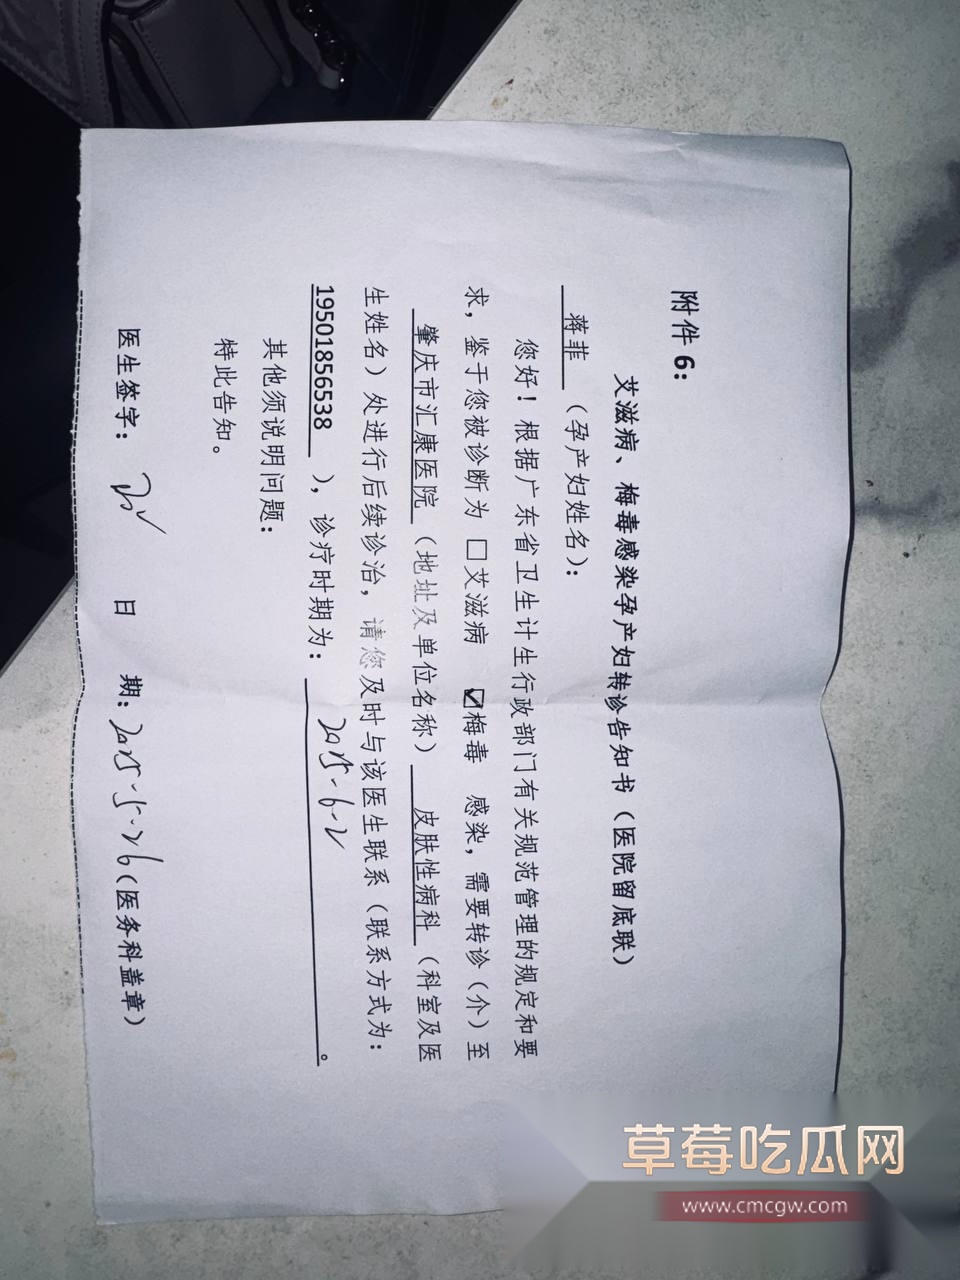 附件 6：
艾滋病、梅毒感染孕产妇转诊告知书（医院留底联）
蒋菲（孕产妇姓名）：
您好！根据广东省卫生计生行政部门有关规范管理的规定和要
求，鉴于您被诊断为 □艾滋病 ☑梅毒 感染，需要转诊（介）至
肇庆市汇康医院（地址及单位名称）皮肤性病科（科室及医
生姓名）处进行后续诊治，请您及时与该医生联系（联系方式为：
19501856538），诊疗时期为：2025-6-2。
其他须说明问题：
特此告知。
医生签字：
日 期：2025-5-26（医务科盖章）
草莓吃瓜网
www.cmcgw.com